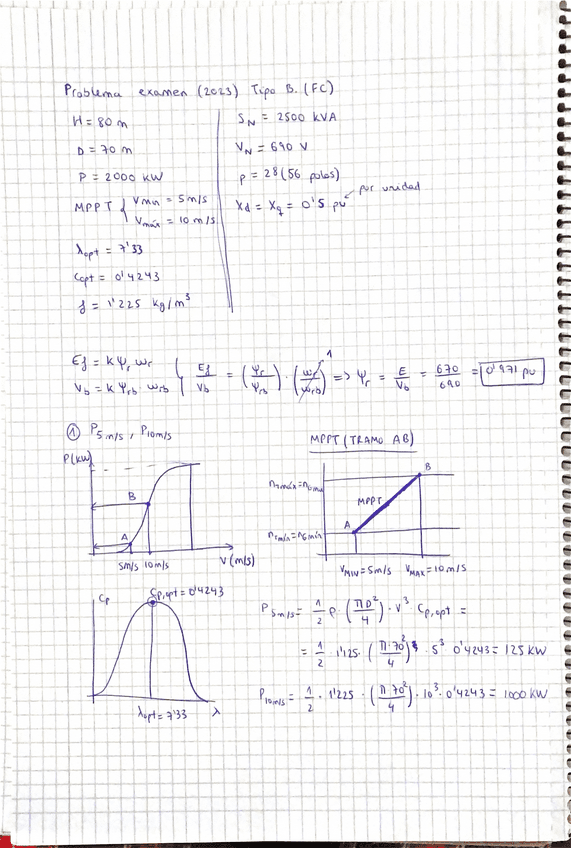 Problema examen (2023) Tipo B. (FC)
H = 80 m
D = 70 m
P = 2000 kW
MPPT { Vmin = 5 m/s
Vmáx = 10 m/s
λopt = 7'33
Copt = 0'4243
f = 1'225 kg/m³
SN = 2500 kVA
VN = 690 V
p = 28 (56 polos)
Xd = Xq = 0'5 pu
por unidad
Ef = k Ψr ωr
Vb = k Ψrb ωrb
Ef/Vb = (Ψr/Ψrb) · (ωr/ωrb) 1 => Ψr = E/Vb = 670/690 = 0'971 pu
① P5m/s , P10m/s
P(kW)
B
A
5m/s 10m/s
V(m/s)
MPPT (TRAMO AB)
B
MPPT
A
VMIN = 5m/s VMAX = 10 m/s
Cp
Cp,opt = 0'4243
λopt = 7'33
λ
P5m/s = 1/2 ρ · (πD²/4) · v³ Cp,opt =
= 1/2 · 1'125 · (π·70²/4) · 5³ 0'4243 = 125 kW
P10m/s = 1/2 · 1'225 · (π·70²/4) · 10³ · 0'4243 = 1000 kW